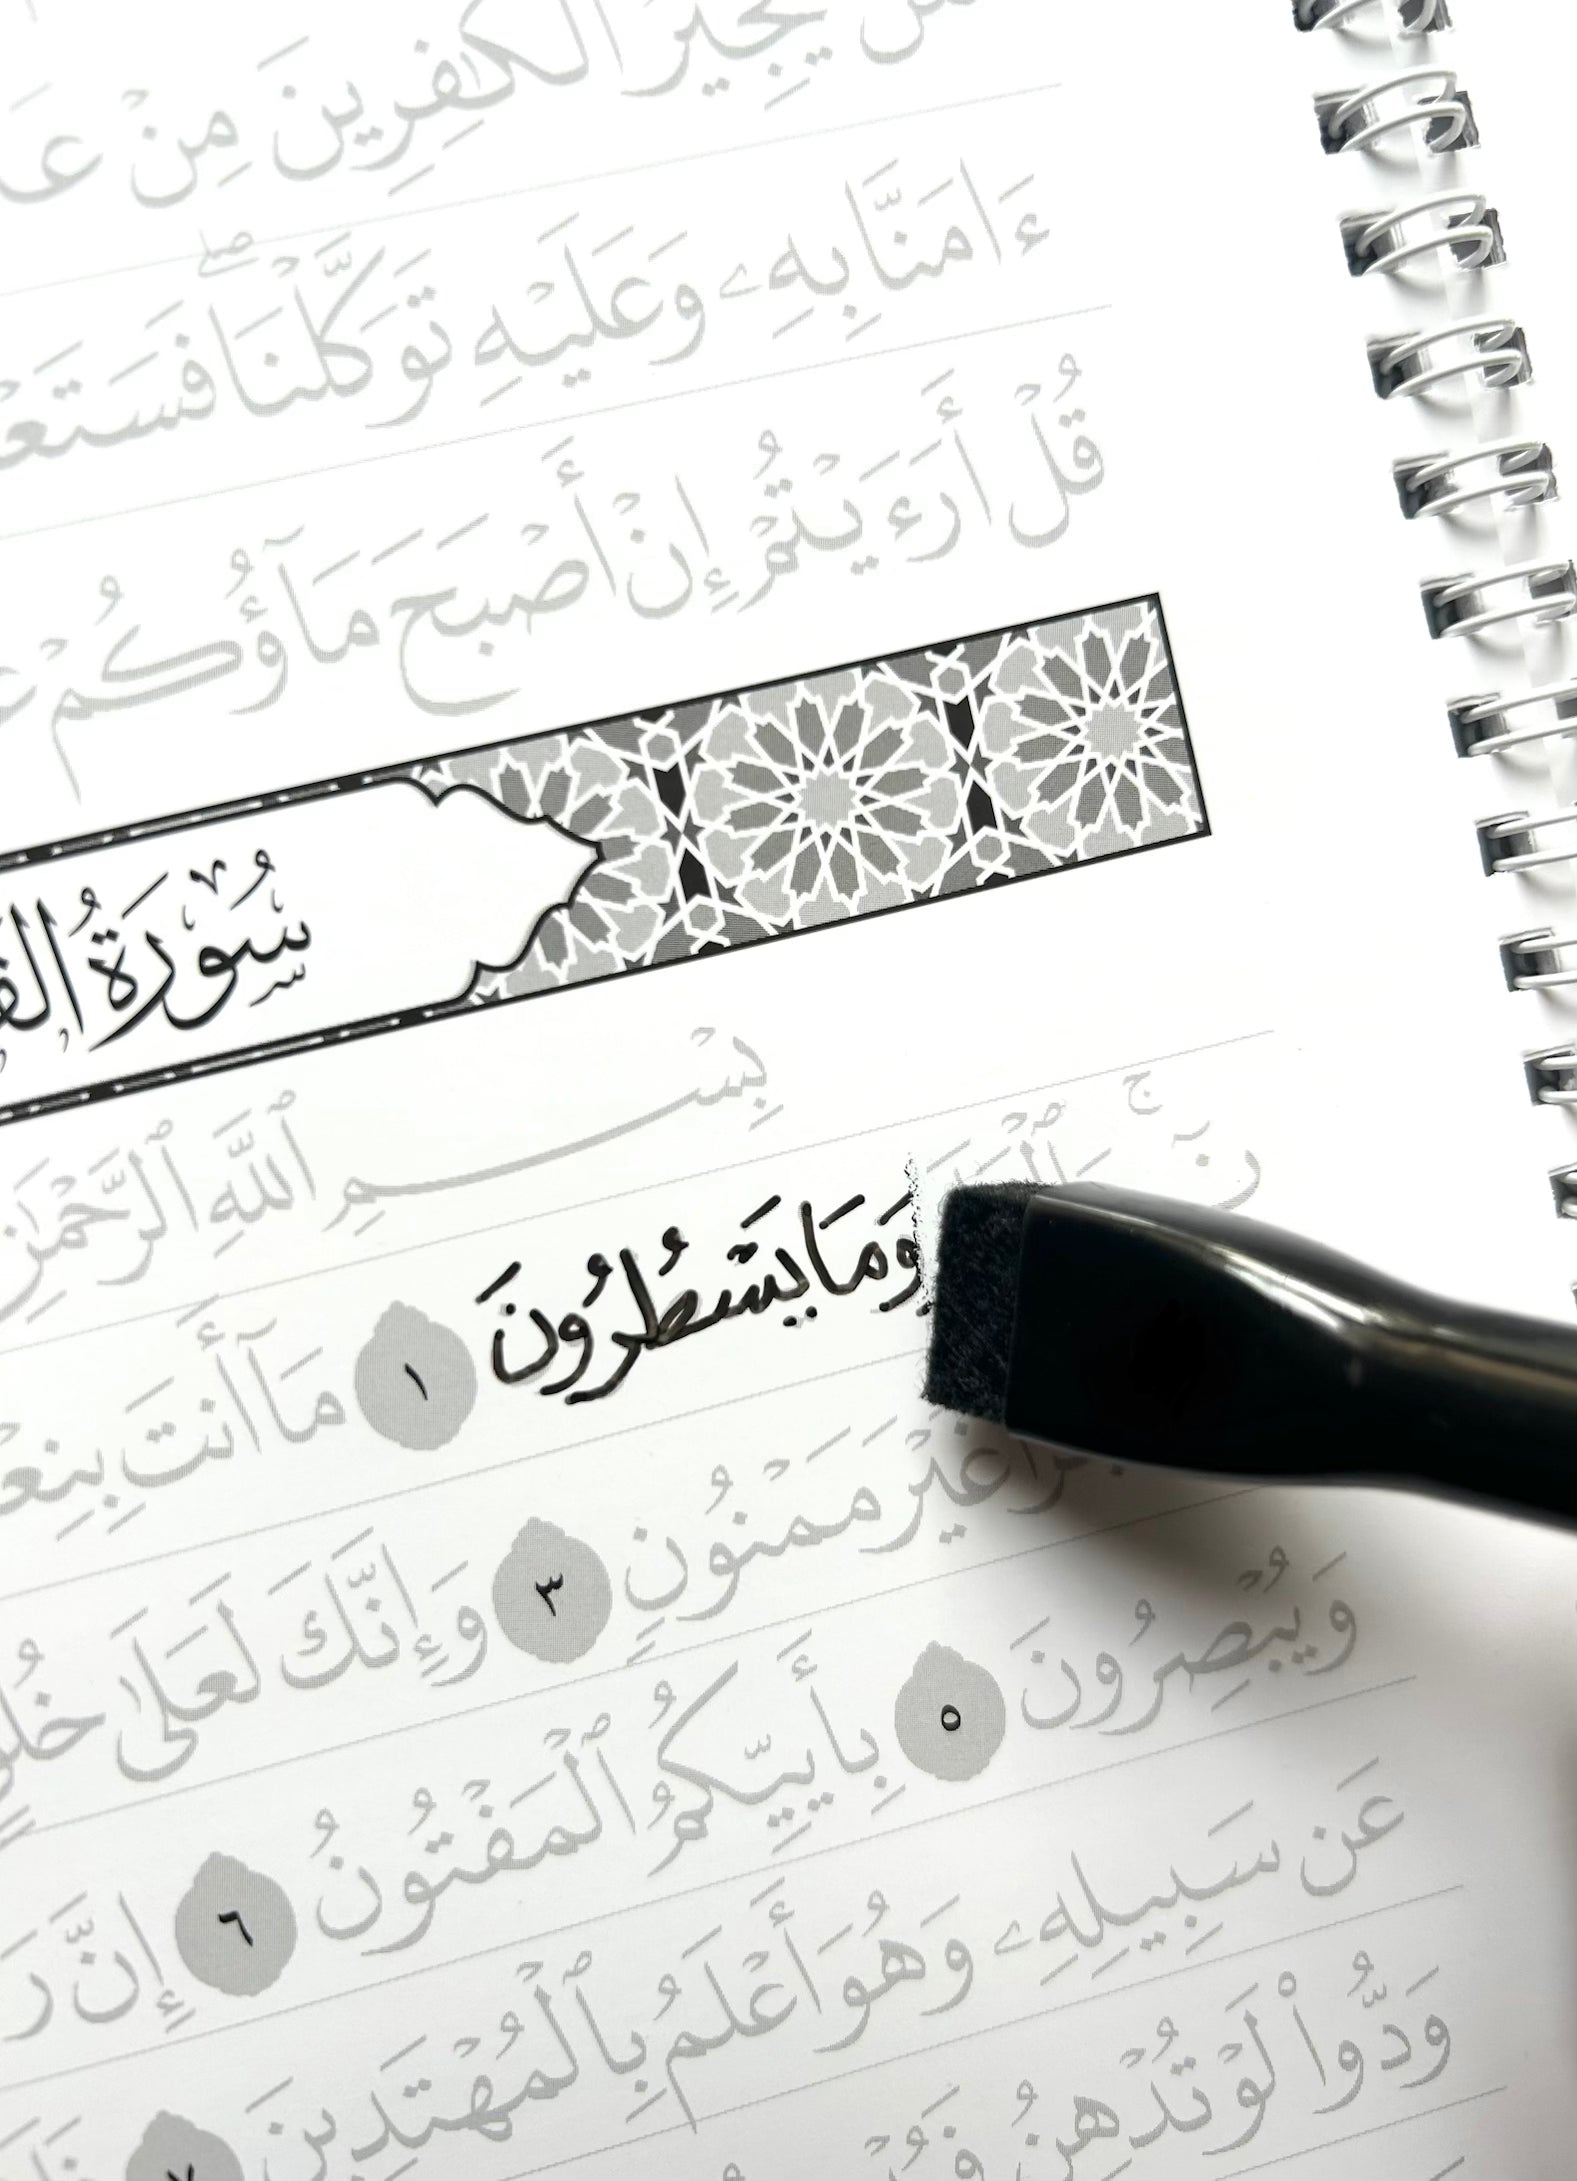 يُجِيرُ ٱلْكَٰفِرِينَ مِنْ
ءَامَنَّا بِهِۦ وَعَلَيْهِ تَوَكَّلْنَا ۖ
قُلْ أَرَءَيْتُمْ إِنْ أَصْبَحَ مَآؤُكُمْ
سُورَةُ
بِسْمِ ٱللَّهِ ٱلرَّحْمَٰنِ
نٓ ۚ وَمَا يَسْطُرُونَ ١ مَآ أَنتَ
غَيْرَ مَمْنُونٍ ٣ وَإِنَّكَ لَعَلَىٰ
وَيُبْصِرُونَ ٥ بِأَييِّكُمُ ٱلْمَفْتُونُ ٦ إِنَّ
عَن سَبِيلِهِۦ وَهُوَ أَعْلَمُ بِٱلْمُهْتَدِينَ ٧
وَدُّوا۟ لَوْ تُدْهِنُ